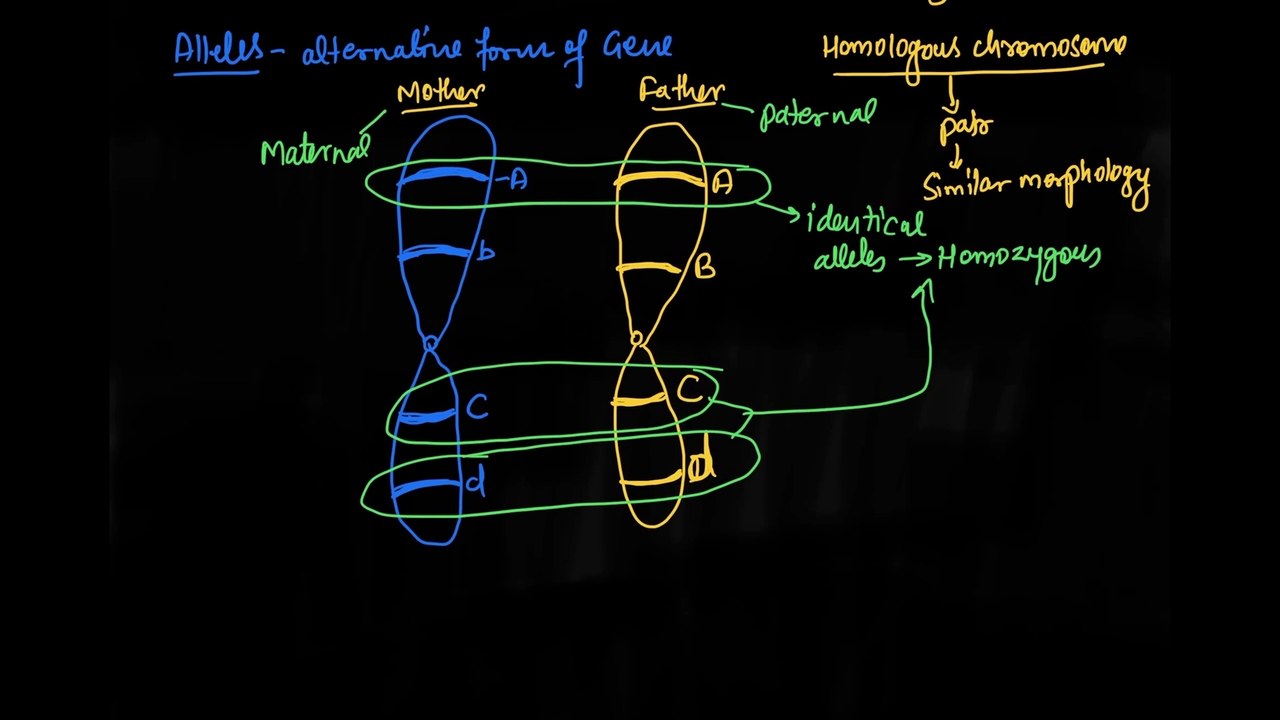 Alleles - alternative form of Gene
Homologous chromosome
Mother
Father
Maternal
paternal
pair
Similar morphology
A
A
identical
alleles → Homozygous
b
B
C
C
d
d